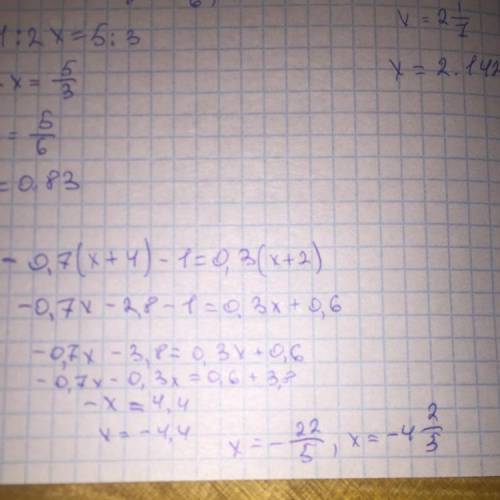 1:2x=5:3
x = 5/3
= 5/6
= 0,83
x = 2 1/7
x = 2.142
- 0,7(x+4) - 1 = 0,3(x+2)
-0,7x - 2,8 - 1 = 0,3x + 0,6
-0,7x - 3,8 = 0,3x + 0,6
-0,7x - 0,3x = 0,6 + 3,8
-x = 4,4
x = -4,4
x = - 22/5 , x = -4 2/5